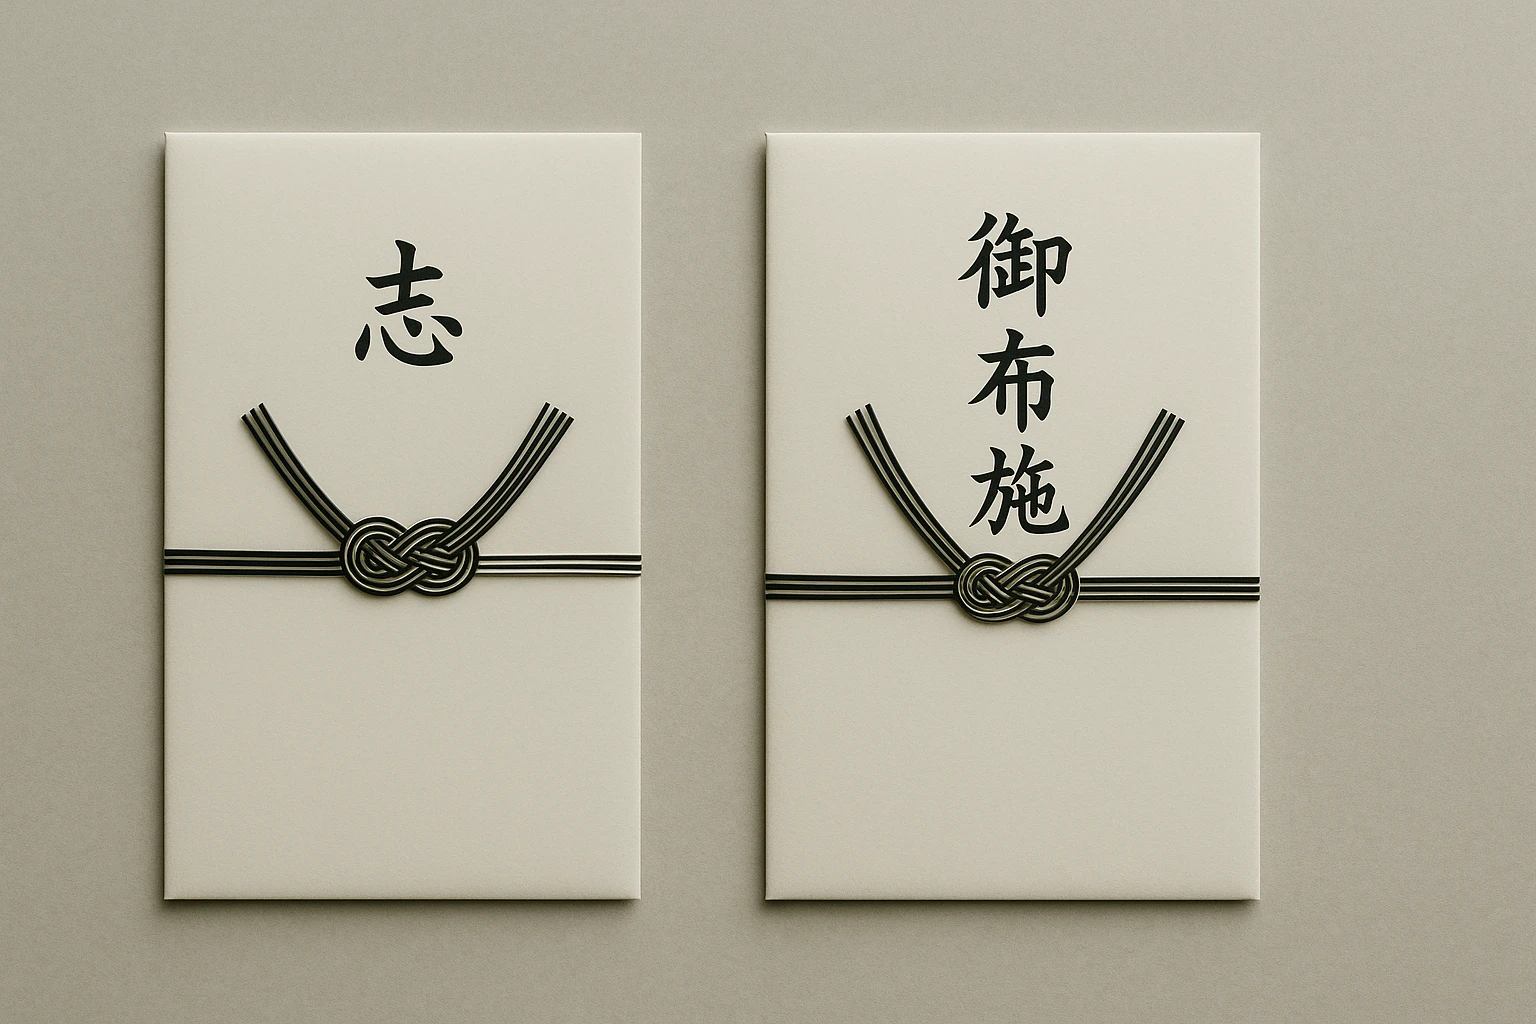 志
御布施